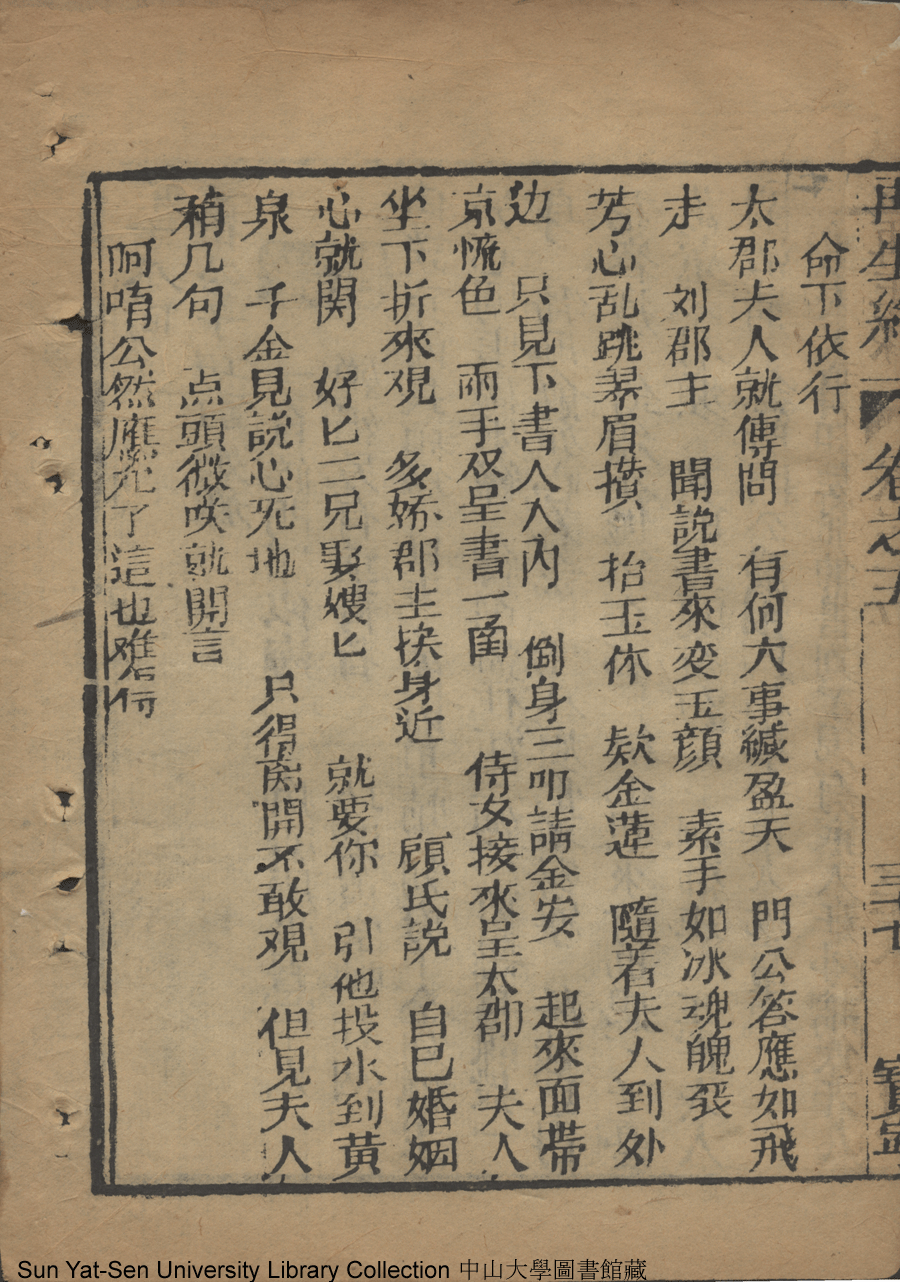 再生緣 卷之五 三十七 寶
命下依行
太郡夫人就傳問 有何大事緘盈天 門公答應如飛
走 刘郡主 聞説書來变玉顔 素手如冰魂魄发
芳心乱跳翠眉攅 抬玉体 欵金蓮 隨着夫人到外
边 只見下書人入内 倒身三叩請金安 起來面帶
京慌色 兩手双呈書一函 侍女接來呈太郡 夫人
坐下折來观 多娇郡主挨身近 顧氏説 自己婚姻
心就関 好匕二兄娶嫂匕 就要你 引他投水到黄
泉 千金見説心死地 只得𮗚開不敢观 但見夫人
稍几句 点頭微咲就開言
阿唷公然應允了這也难得
Sun Yat-Sen University Library Collection 中山大學圖書館藏